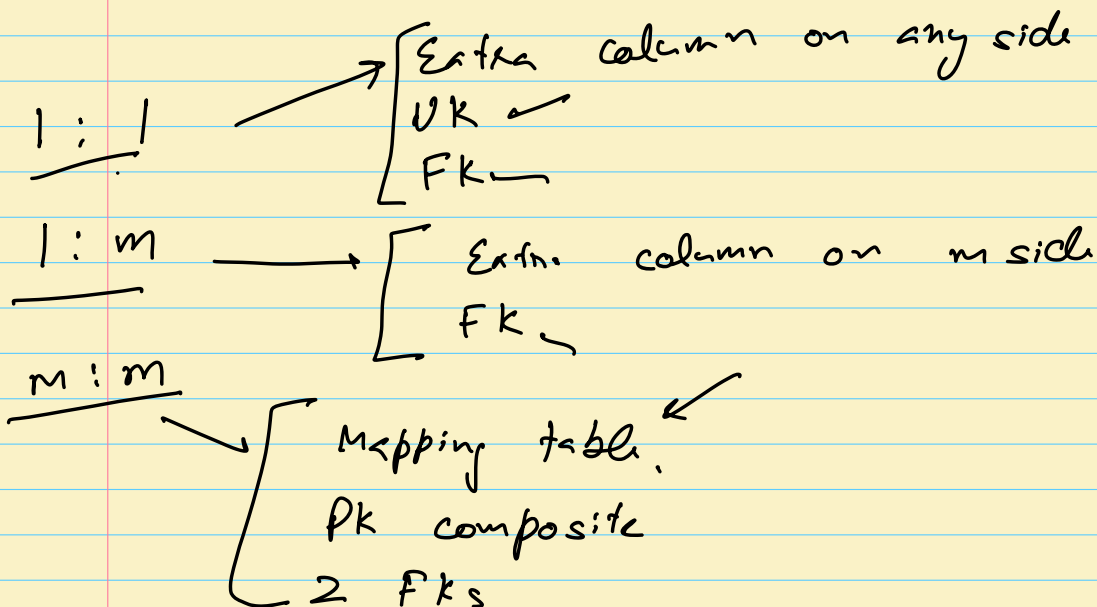 1 : 1
Extra column on any side
UK
FK
1 : m
Extra column on m side
FK
m : m
Mapping table.
PK composite
2 FKs